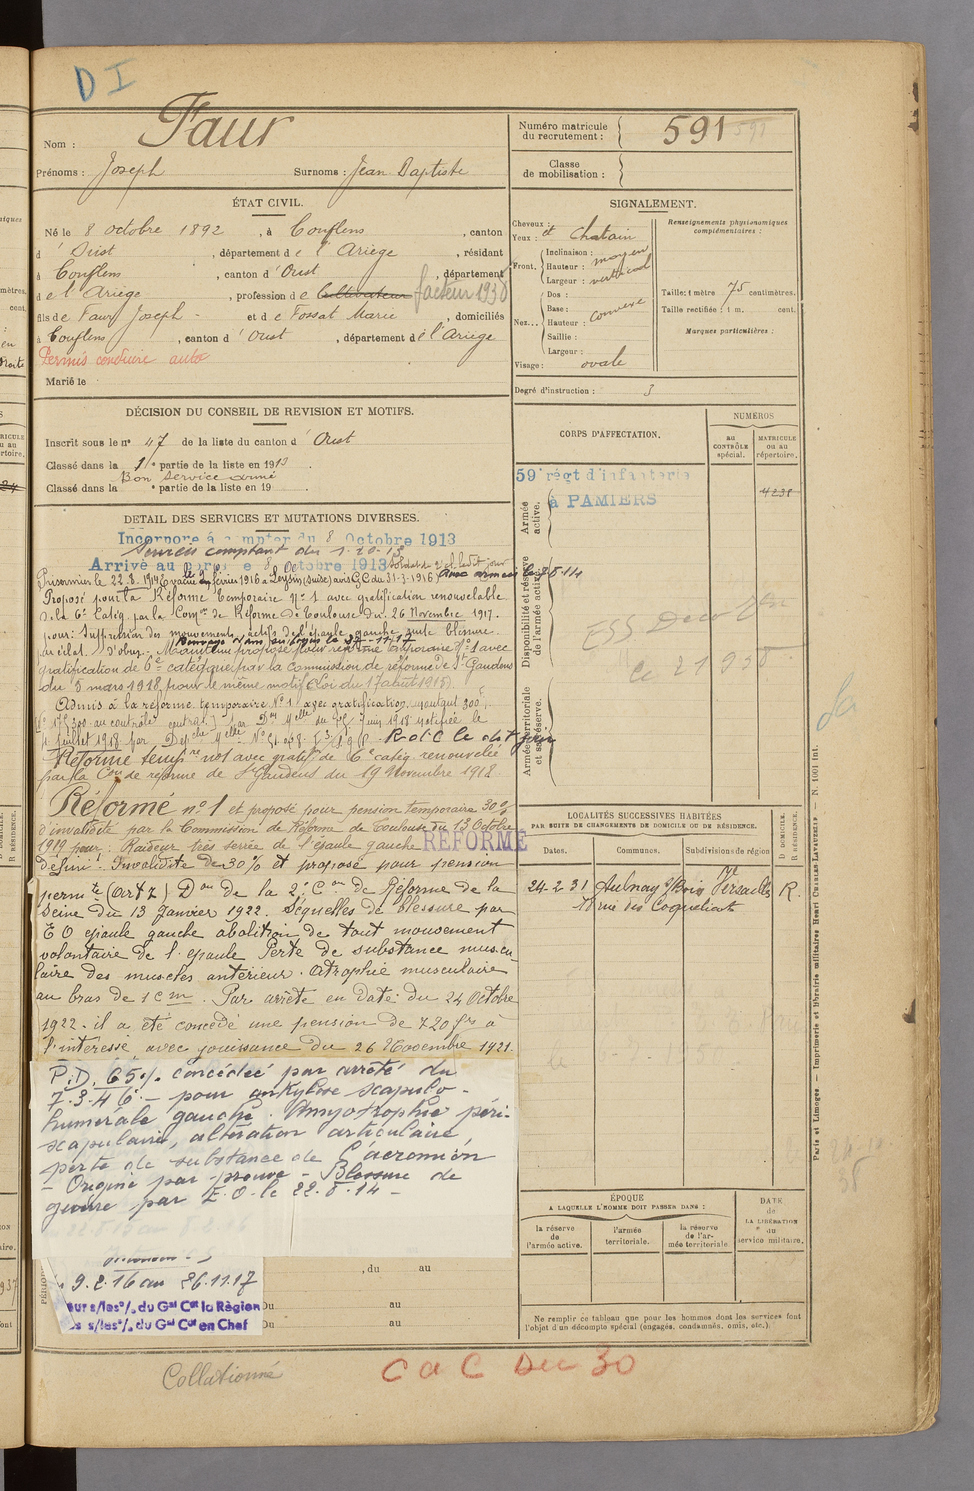 D I
Nom : Faur
Prénoms : Joseph Surnoms : Jean Baptiste
Numéro matricule du recrutement : 591
Classe de mobilisation :
ÉTAT CIVIL.
Né le 8 octobre 1892, à Couflens, canton
d'Oust, département de l'Ariège, résidant
à Couflens, canton d'Oust, département
de l'Ariège, profession de Cultivateur facteur 1938
fils de Faur Joseph - et de Fossat Marie, domiciliés
à Couflens, canton d'Oust, département de l'Ariège
Permis conduire auto
Marié le
SIGNALEMENT.
Cheveux :
Yeux : et chatain
Front. Inclinaison : moyen
Hauteur : vertical
Largeur :
Nez... Dos :
Base : convexe
Hauteur :
Saillie :
Largeur :
Visage : ovale
Renseignements physionomiques complémentaires :
Taille : 1 mètre 75 centimètres.
Taille rectifiée : 1 m. cent.
Marques particulières :
Degré d'instruction : 3
DÉCISION DU CONSEIL DE REVISION ET MOTIFS.
Inscrit sous le n° 47 de la liste du canton d'Oust
Classé dans la 1re partie de la liste en 1913.
Bon service armé
Classé dans la e partie de la liste en 19 .
CORPS D'AFFECTATION.
NUMÉROS
au CONTRÔLE spécial.
MATRICULE ou au répertoire.
59e régt d'infanterie
à PAMIERS
4238
Armée active.
Disponibilité et réserve de l'armée active.
Armée territoriale et sa réserve.
DETAIL DES SERVICES ET MUTATIONS DIVERSES.
Incorporé à compter du 8 Octobre 1913
Services comptant du 1-10-13
Arrivé au corps le 8 Octobre 1913 soldat 2e cl ledit jour
Prisonnier le 22.8.1914 Evacué le 9 février 1916 à Leysin (suisse) avis GC du 31-3-1916 aux armées le 7 8 14
Proposé pour la Réforme Temporaire N° 1 avec gratification renouvelable
de la 6e Catég. par la Comon de Réforme de Toulouse du 26 Novembre 1917.
pour : Suppression des mouvements actifs de l'épaule gauche suite blessure
par éclat d'obus. Maintenu proposé pour réforme temporaire N° 1 avec
gratification de 6e catégorie par la Commission de réforme de St Gaudens
du 5 mars 1918 pour le même motif (Loi du 17 août 1915).
Admis à la réforme temporaire N° 1 avec gratification, montant 300f
juillet 1918 par R.d.C le dit jour
Réforme tempre n°1 avec gratifon de 6e catég. renouvelée
par la Con de réforme de St Gaudens du 19 Novembre 1918
Réformé n° 1 et proposé pour pension temporaire 30%
d'invalidité par la Commission de Réforme de Toulouse du 13 Octobre
1919 pour : Raideur très serrée de l'épaule gauche RÉFORMÉ
Définie. Invalidité de 30% et proposé pour pension
permte (art 7) Don de la 2e Con de Réforme de la
Seine du 13 Janvier 1922. Séquelles de blessure par
E O épaule gauche abolition de tout mouvement
volontaire de l'épaule Perte de substance muscu-
laire des muscles antérieur. Atrophie musculaire
au bras de 1 cm. Par arrêté en date du 24 Octobre
1922 il a été concédé une pension de 720 frs à
l'intéressé avec jouissance du 26 Novembre 1921.
P.D. 65% concédée par arrêté du
7.3.46 - pour ankylose scapulo-
humérale gauche. Amyotrophie péri-
scapulaire, altération articulaire,
perte de substance de l'acromion
- Origine par preuve - Blessure de
guerre par E.O. le 22.8.14 -
9.2.16 au 26.11.17
s/les o/. du Gal Ct la Région
s/les o/. du Gal Ct en Chef
, du au
Du au
Du au
ESS
LOCALITÉS SUCCESSIVES HABITÉES
PAR SUITE DE CHANGEMENTS DE DOMICILE OU DE RÉSIDENCE.
Dates.
Communes.
Subdivisions de région
D DOMICILE.
R RÉSIDENCE.
24-2-31 Aulnay s/Bois Versailles R.
rue des Coquelicots
ÉPOQUE
A LAQUELLE L'HOMME DOIT PASSER DANS :
la réserve de l'armée active.
l'armée territoriale.
la réserve de l'armée territoriale
DATE de LA LIBÉRATION du service militaire.
Ne remplir ce tableau que pour les hommes dont les services font
l'objet d'un décompte spécial (engagés, condamnés, omis, etc.).
Paris et Limoges. — Imprimerie et librairie militaires Henri Charles-Lavauzelle. — N. 1001 int.
Collationné
C a C Dec 30